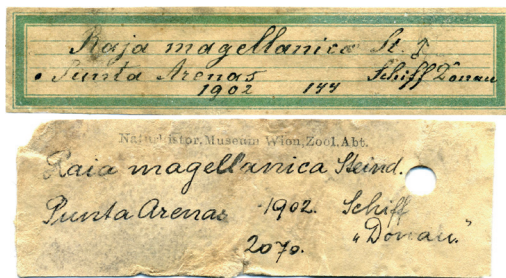 Raja magellanica St. ♀
Punta Arenas Schiff Donau
1902 144
Naturhistor. Museum Wien, Zool. Abt.
Raia magellanica Steind.
Punta Arenas 1902. Schiff
"Donau."
2070.